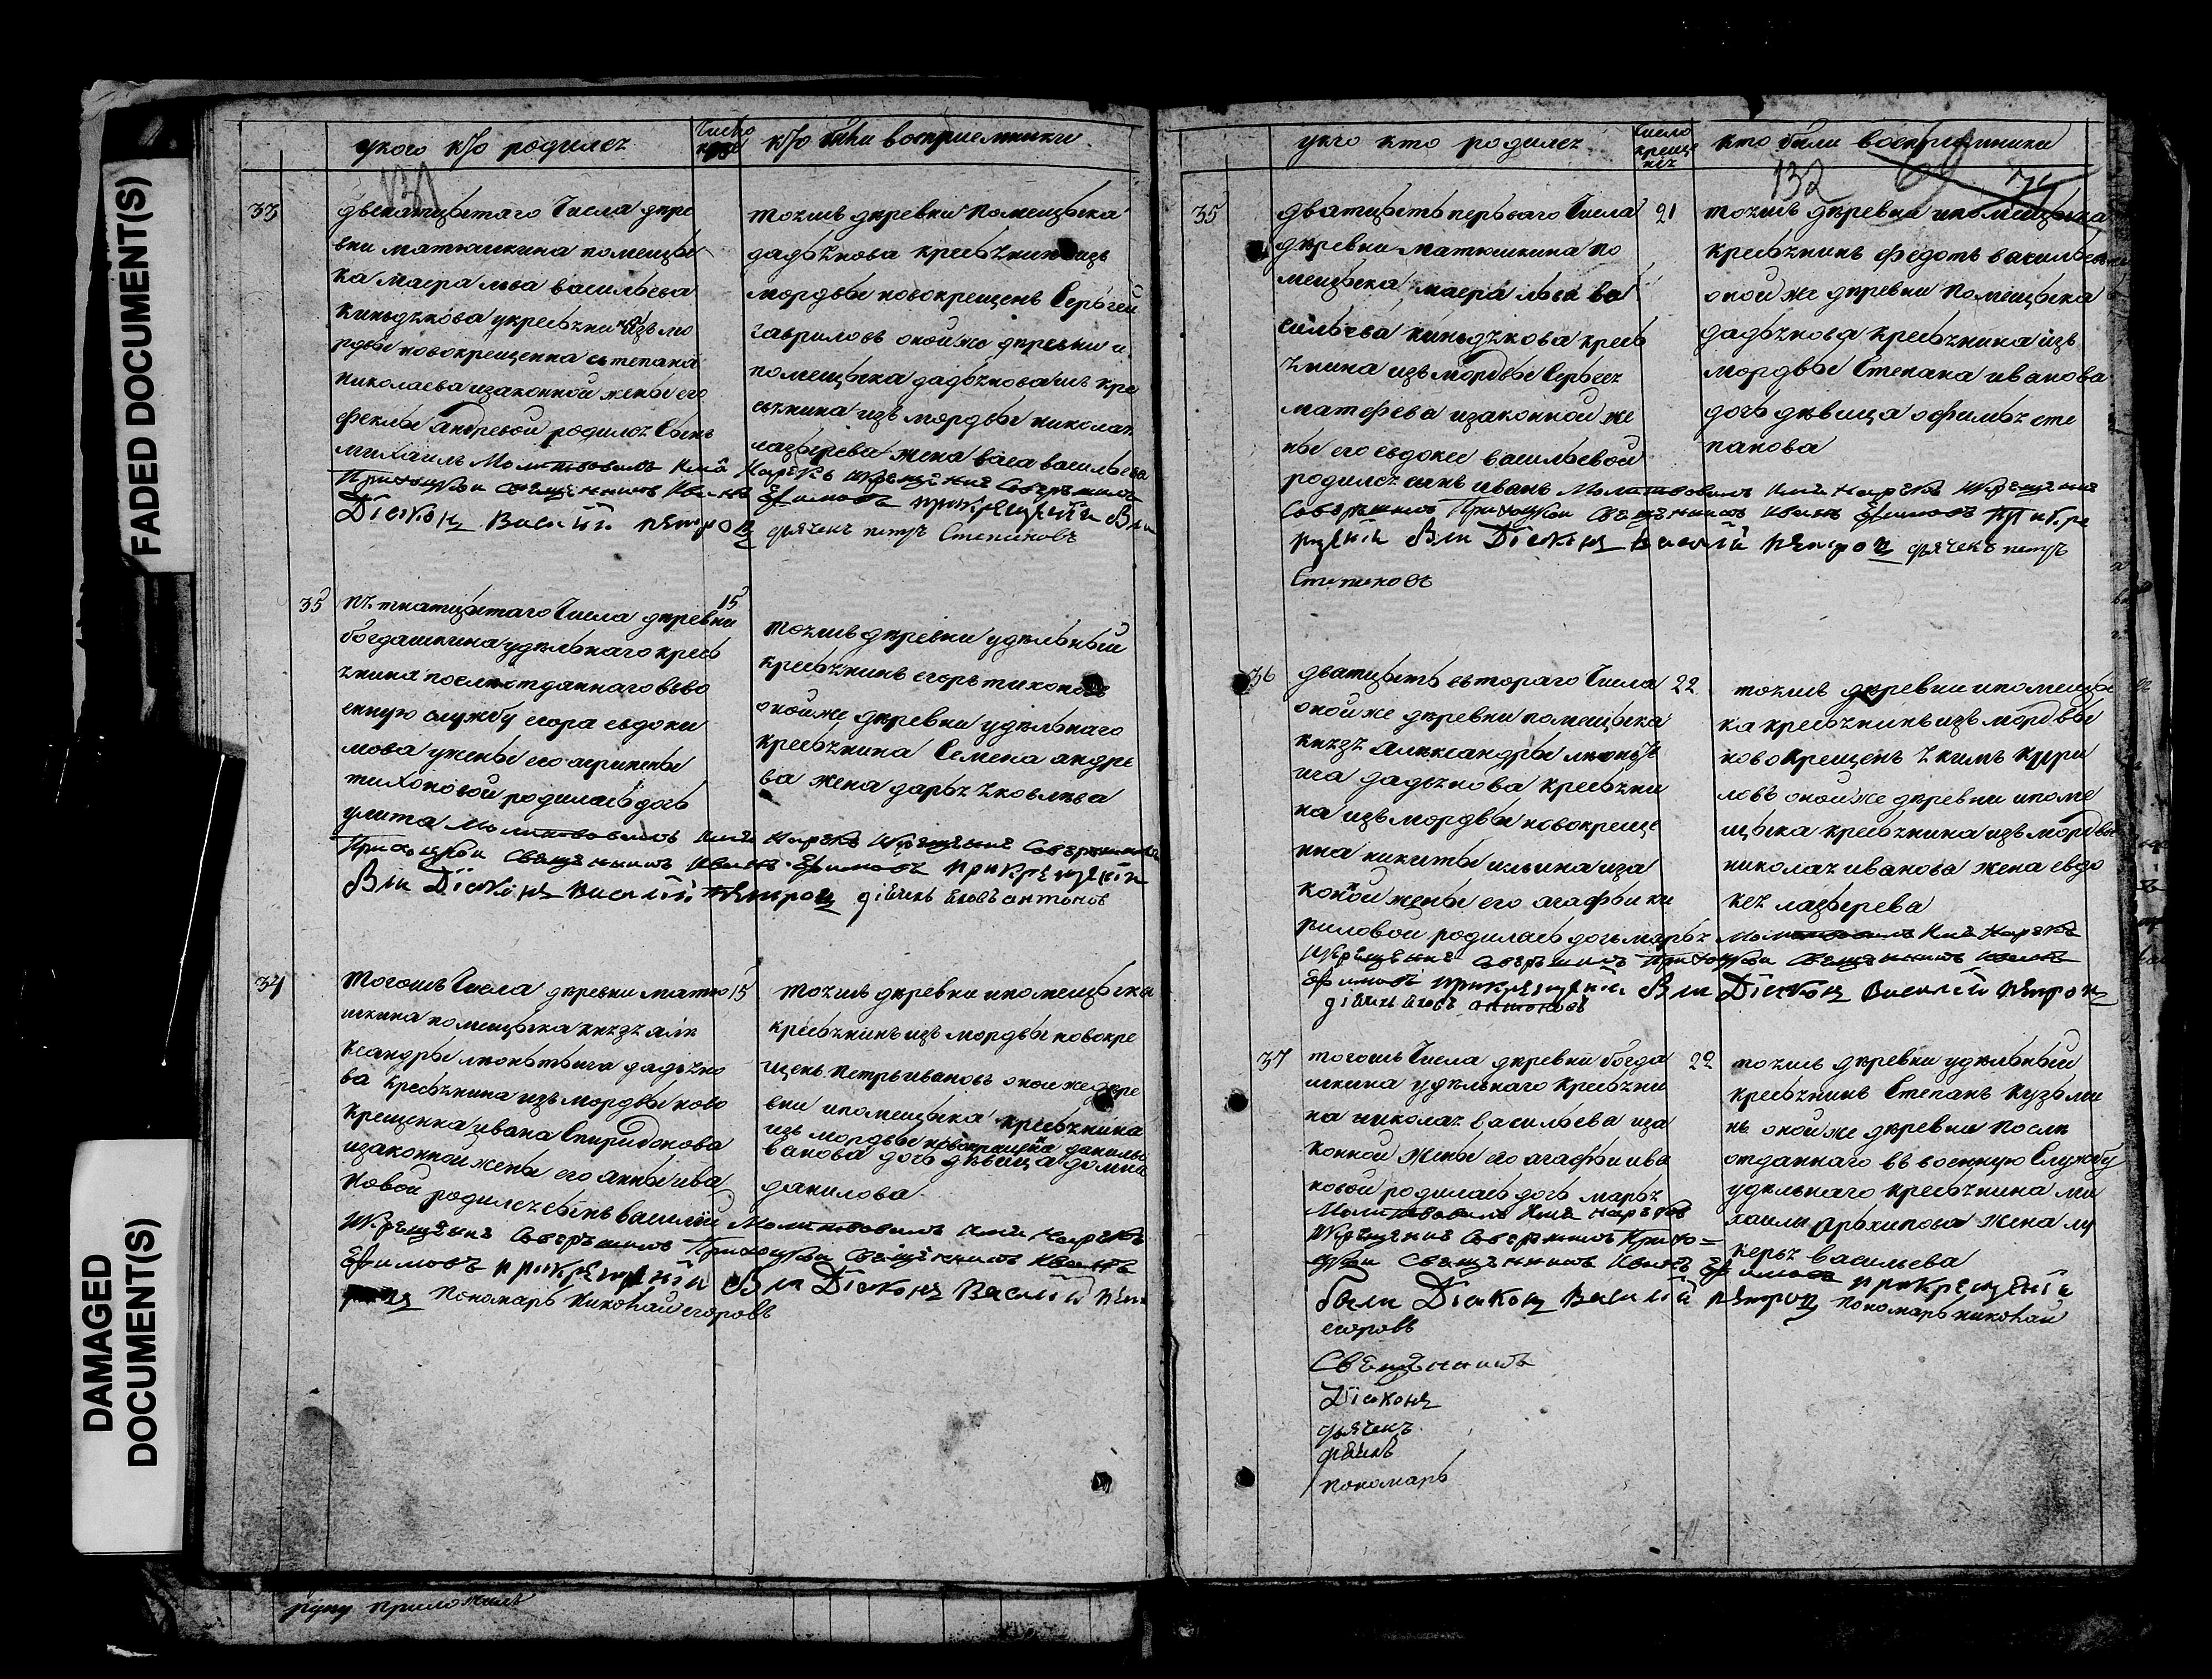 FADED DOCUMENT(S)
DAMAGED
DOCUMENT(S)
у кого кто родилея
число
кре
кто были восприемники
131
33
двенатцытаго числа дере
вни матюшкина помещы
ка маера лва василыева
киньдякова у кресьянина изъ мо
рдвы новокрещенна степана
николаева изаконной жены его
феклы андревой родился сынъ
михаилъ Молитвовалъ Имя Нарекъ
Икрещение Совершилъ
Приходской Священникъ Иванъ Ефимовъ при крещении Были
Діаконъ Василій Петровъ
дьячекъ петръ Степановъ
тояжъ деревни помещыка
дадьянова кресьянинъ изъ
мордвы новокрещенъ Сергей
гавриловъ оной же деревни и
помещыка дадьянова кре
сьянина изъ мордвы николая
лазырева жена васа васильева
35
15
пятнатцытаго числа деревни
богдашкина удельнаго кресь
янина после отданнаго вьво
енную службу егора евдоки
мова у жены его агрипены
тихоновой родилась дочь
улита Молитвовалъ Имя Нарекъ Икрещение Совершилъ
Приходской Священникъ Иванъ Ефимовъ при крещеніи
Были Діаконъ Василій Петровъ дьячекъ антонов
тояжъ деревни удельный
кресьянинъ егоръ тихоновъ
оной же деревни удельнаго
кресьянина Семена андре
ва жена дарья яковлева
34
15
тогожъ числа деревни матю
шкина помещыка князя але
ксандры леонтьича дадьяно
ва кресьянина изъ мордвы ново
крещенна ивана Спиридонова
изаконной жены его анны ива
новой родился сынъ василий Молитвовалъ имя Нарекъ
Икрещение Совершилъ Приходской Священникъ Иванъ
Ефимовъ при крещеніи Были Діаконъ Василій Пет
ровъ Пономарь Николай егоровъ
тояжъ деревни и помещыка
кресьянинъ изъ мордвы новокре
щенъ петръ ивановъ оной же дере
вни и помещыка кресьянина
изъ мордвы новокрещена данилы
ванова дочь девица домна
данилова
руку приложилъ
у кого кто родилея
число
креще
нея
кто были восприемники
132
35
21
дватцыть перьваго числа
деревни матюшкина по
мещыка маера льва ва
сильева киньдякова кресь
янина изъ мордвы Сергея
матфева изаконной же
ны его евдокеи васильевой
родился сынъ иванъ Молитвовалъ Имя Нарекъ Икрещение
Совершилъ Приходской Священникъ Иванъ Ефимовъ
Были Діаконъ Василій Петровъ дьячекъ петръ
Степановъ
тояжъ деревни и помещыка
кресьянинъ федотъ васильевъ
оной же деревни помещыка
дадьянова кресьянина изъ
мордвы Степана иванова
дочь девица офимья сте
панова
36
22
дватцыть втораго числа
оной же деревни помещыка
князя александры леонтьи
ча дадьянова кресьяни
на изъ мордвы новокреще
нна никиты ильина иза
конной жены его агафьи ки
риловой родилась дочь марья Молитвовалъ Имя Нарекъ
Икрещение Совершилъ Приходской Священникъ Иванъ
Ефимовъ при крещеніи Были Діаконъ Василій Петровъ
антоновъ
тояжъ деревни и помещы
ка кресьянинъ изъ мордвы
новокрещенъ якимъ кири
ловъ оной же деревни и поме
щыка кресьянина изъ мордвы
николая иванова жена евдо
кея лазырева
37
22
тогожъ числа деревни богда
шкина удельнаго кресьяни
на николая васильева иза
конной жены его агафьи ива
новой родилась дочь марья
Молитвовалъ Имя нарекъ
Икрещение Совершилъ Прихо-
дской Священникъ Иванъ Ефимовъ при крещеніи
были Діаконъ Василій Петровъ Пономарь николай
егоровъ
тояжъ деревни удельный
кресьянинъ Степанъ кузьми
нъ оной же деревни после
отданнаго въ военную Службу
удельнаго кресьянина ми
хаилы архипова жена лу
керья васильева
Священникъ
Діаконъ
дьячекъ
дьячекъ
пономарь